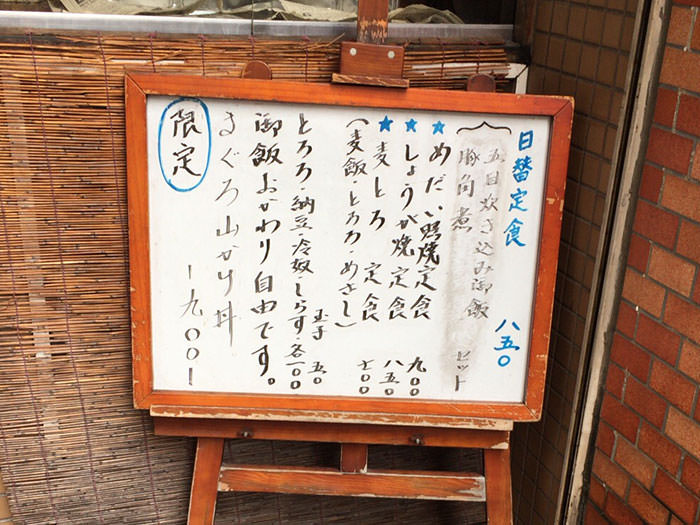 日替定食 八五〇
五目炊き込み御飯
豚角煮 セット
★めだい照焼定食 九〇〇
★しょうが焼定食 八五〇
★麦とろ定食 七〇〇
(麦飯・とろろ・めざし)
とろろ・納豆・冷奴・しらす・各一〇〇
玉子 五〇
御飯おかわり自由です。
まぐろ山かけ丼
限定 一九〇〇一